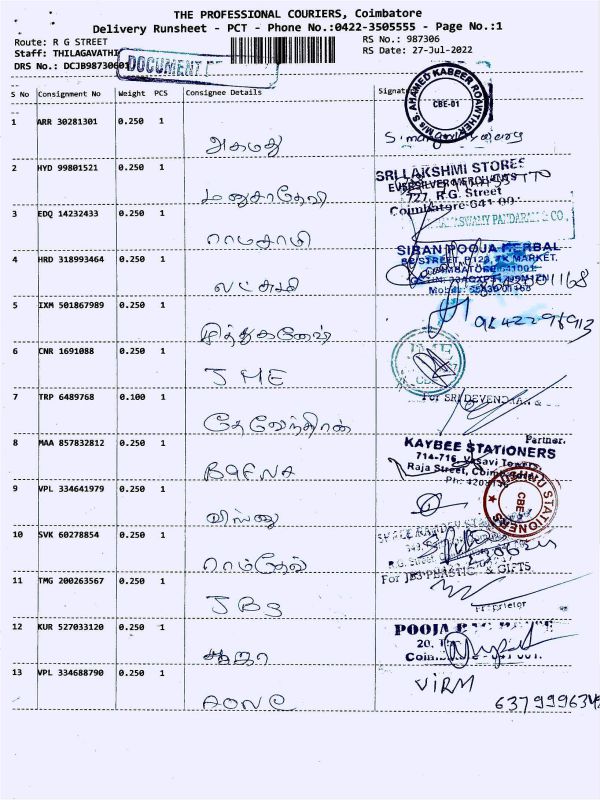 THE PROFESSIONAL COURIERS, Coimbatore
Delivery Runsheet - PCT - Phone No.:0422-3505555 - Page No.:1
Route: R G STREET RS No.: 987306
Staff: THILAGAVATHI RS Date: 27-Jul-2022
DRS No.: DCJB98730601
DOCUMENT
S No Consignment No Weight PCS Consignee Details Signature
M/s S. AHAMED KABEER ROWTHER
CBE-01
1 ARR 30281301 0.250 1
அகமது
2 HYD 99801521 0.250 1
SRI LAKSHMI STORES
EVERSILVER MERCHANTS
727, R.G. Street
Coimbatore-641 001
மனுசாதேவி
3 EDQ 14232433 0.250 1
RAMASWAMY PANDARAM & CO.,
ராமசாமி
4 HRD 318993464 0.250 1
SIBAN POOJA HERBAL
TK MARKET,
COIMBATORE-641001
லட்சுமி
5 IXM 501867989 0.250 1
முத்துகணேஷ்
6 CNR 1691088 0.250 1
JME
JME
7 TRP 6489768 0.100 1
For SRI DEVENDRAN &
தேவேந்திரன்
Partner.
8 MAA 857832812 0.250 1
KAYBEE STATIONERS
714-716, Vasavi Towers,
Raja Street, Coimbatore
BAFNA
9 VPL 334641979 0.250 1
VISHNU STATIONERS
CBE
விஷ்ணு
10 SVK 60278854 0.250 1
R.G. Street,
ராம்தேவ்
11 TMG 200263567 0.250 1
For JBS PLASTIC & GIFTS
JBS
Proprietor
12 KUR 527033120 0.250 1
POOJA BAG
20,
பூஜா
13 VPL 334688790 0.250 1
VIRM
AONE